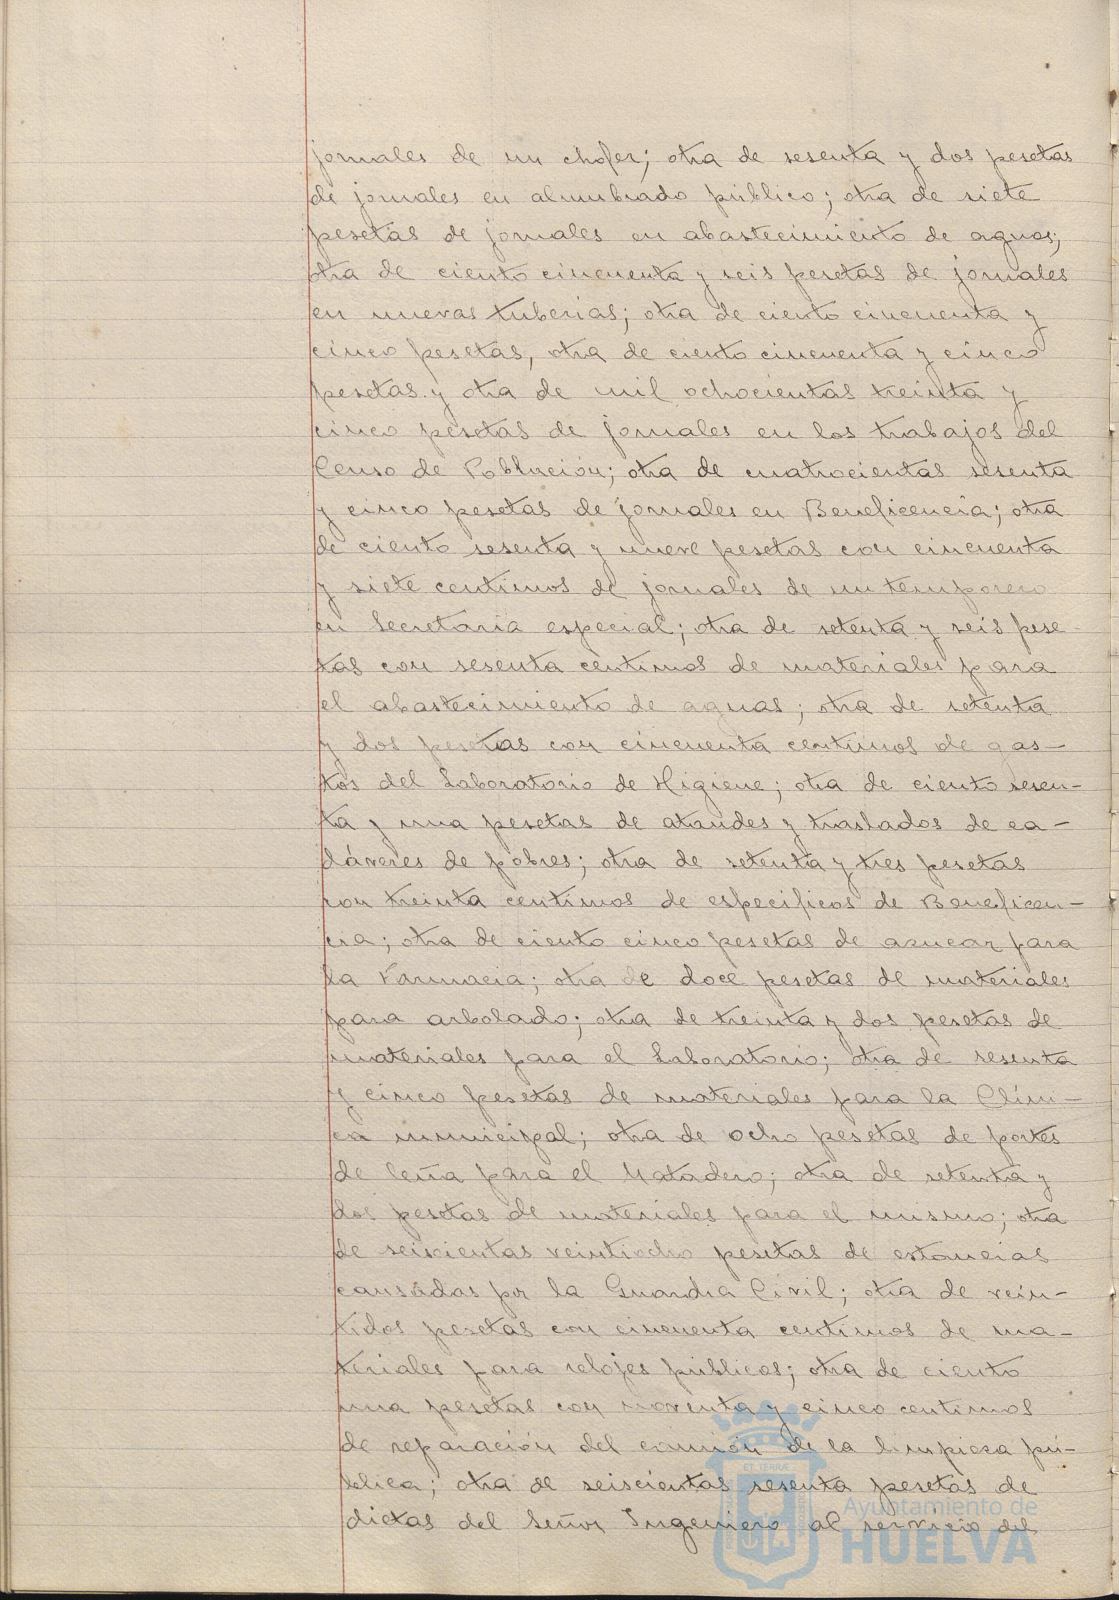 jornales de un chofer; otra de sesenta y dos pesetas
de jornales en alumbrado público; otra de siete
pesetas de jornales en abastecimiento de aguas;
otra de ciento cincuenta y seis pesetas de jornales
en nuevas tuberias; otra de ciento cincuenta y
cinco pesetas, otra de ciento cincuenta y cinco
pesetas y otra de mil ochocientas treinta y
cinco pesetas de jornales en los trabajos del
Censo de Población; otra de cuatrocientas sesenta
y cinco pesetas de jornales en Beneficencia; otra
de ciento sesenta y nueve pesetas con cincuenta
y siete centimos de jornales de un temporero
en Secretaria especial; otra de setenta y seis pese
tas con sesenta centimos de materiales para
el abastecimiento de aguas; otra de setenta
y dos pesetas con cincuenta centimos de gas-
tos del Laboratorio de Higiene; otra de ciento sesen-
ta y una pesetas de ataudes y traslados de ca-
dáveres de pobres; otra de setenta y tres pesetas
con treinta centimos de especificos de Beneficen-
cia; otra de ciento cinco pesetas de azucar para
la Farmacia; otra de doce pesetas de materiales
para arbolado; otra de treinta y dos pesetas de
materiales para el Laboratorio; otra de sesenta
y cinco pesetas de materiales para la Clíni-
ca municipal; otra de ocho pesetas de portes
de leña para el Matadero; otra de setenta y
dos pesetas de materiales para el mismo; otra
de seiscientas veintiocho pesetas de estancias
causadas por la Guardia Civil; otra de vein-
tidos pesetas con cincuenta centimos de ma-
teriales para relojes públicos; otra de ciento
una pesetas con noventa y cinco centimos
de reparación del camión de la limpieza pú-
blica; otra de seiscientas sesenta pesetas de
dietas del Señor Ingeniero al servicio del
Ayuntamiento de
HUELVA